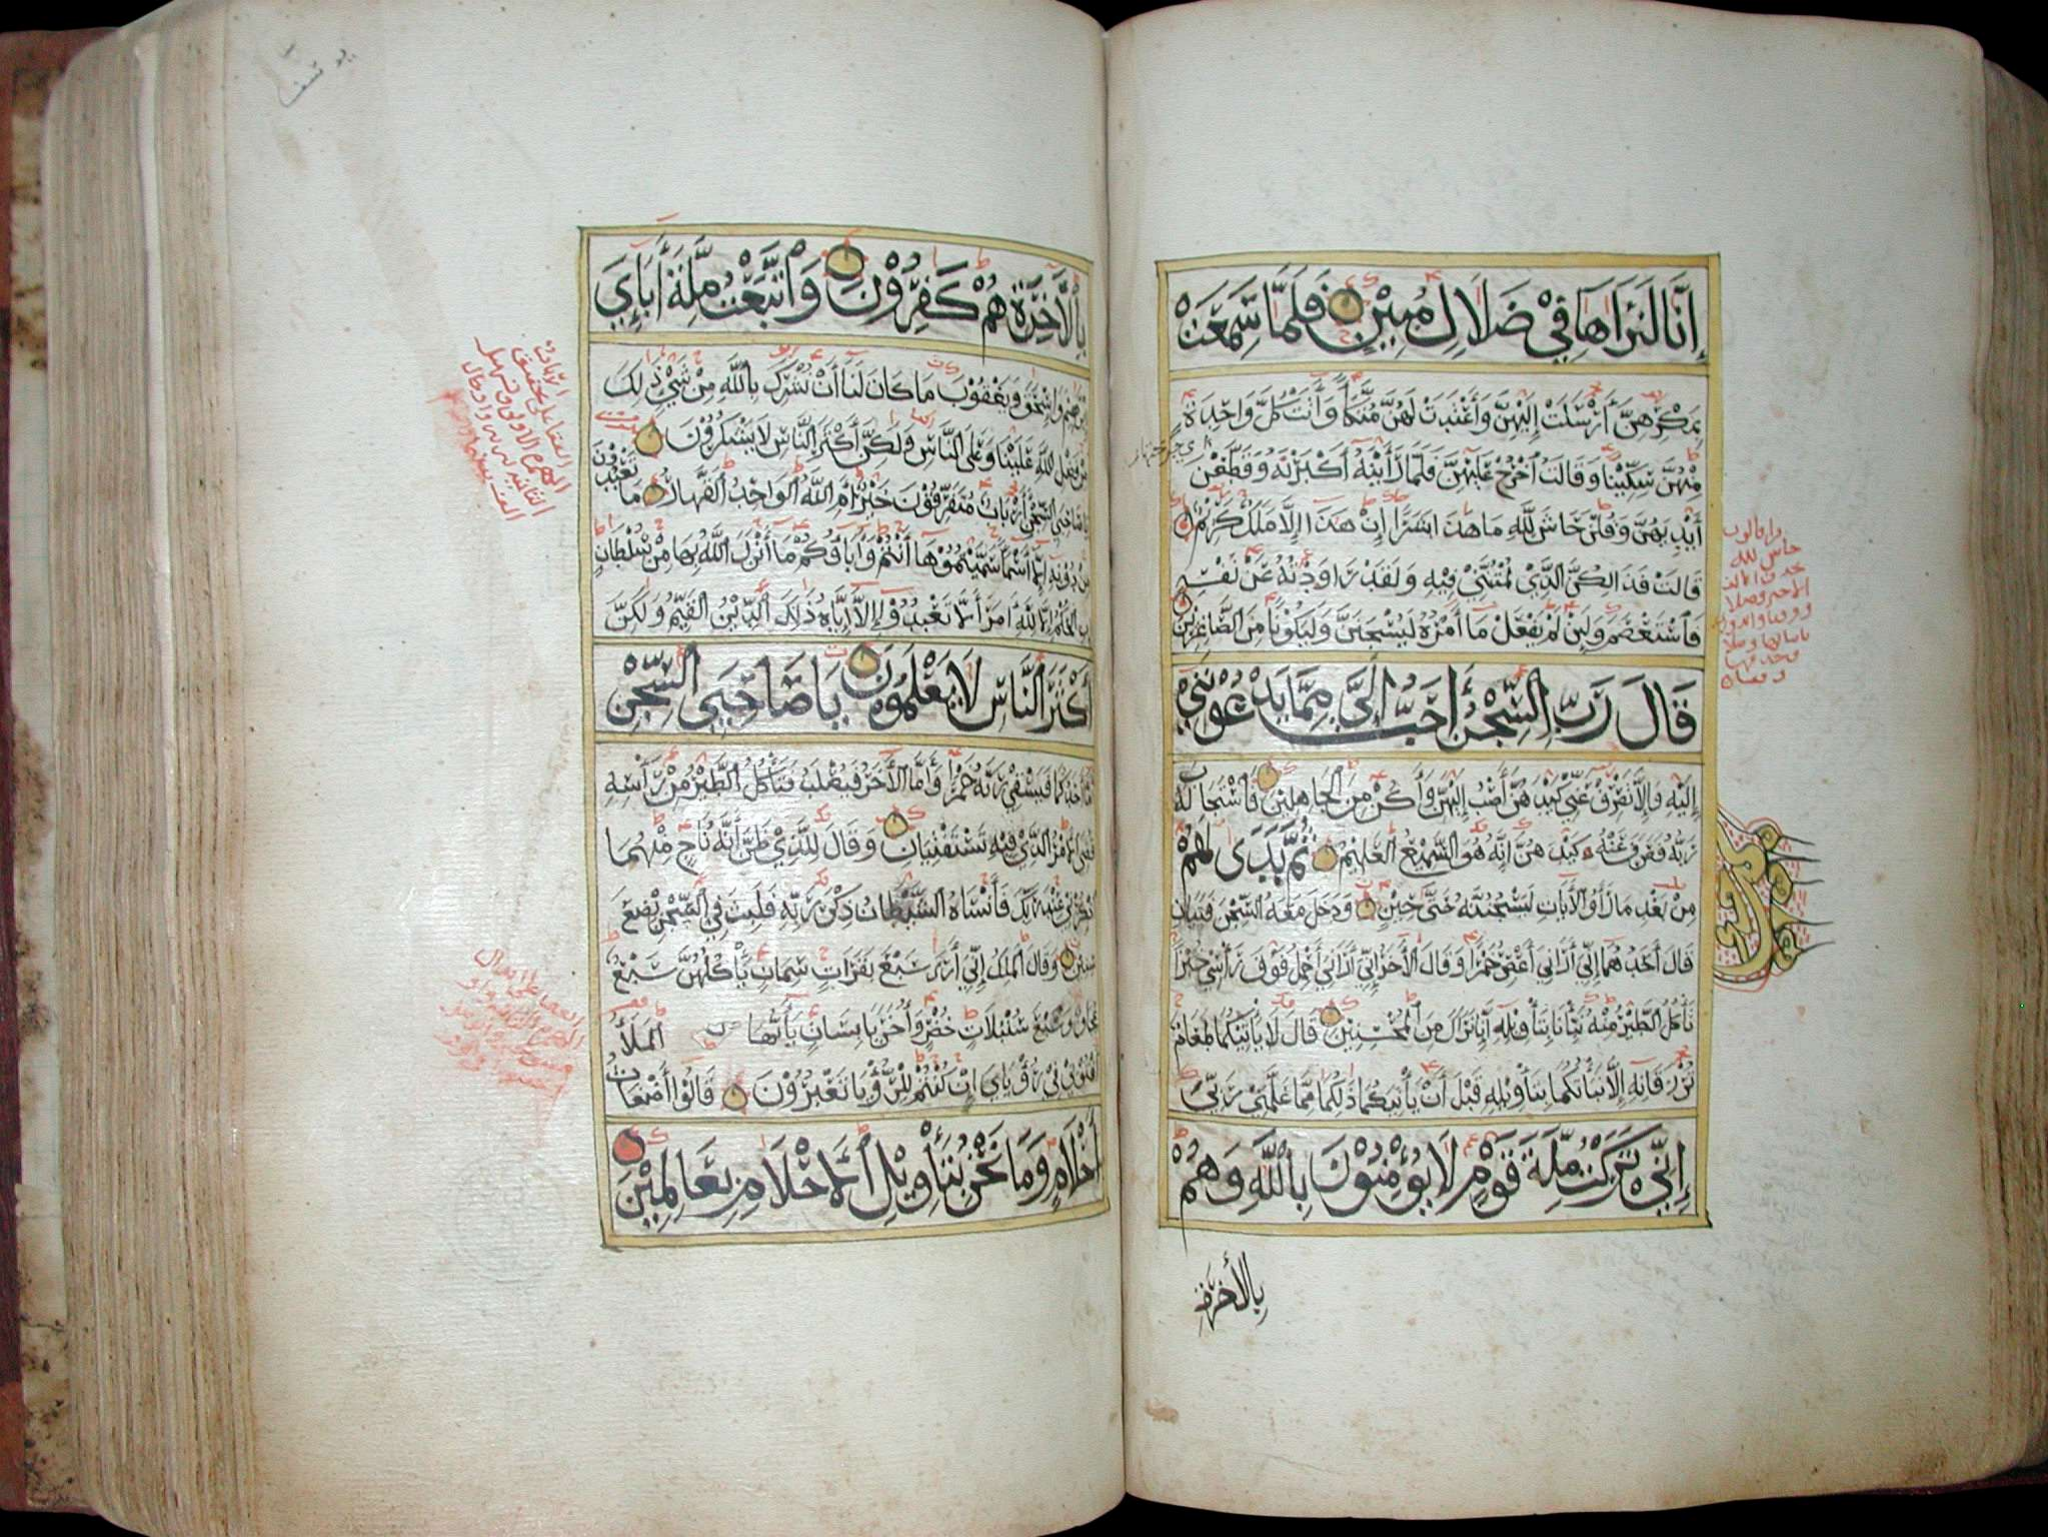 إنا لنراها في ضلال مبين فلما سمعت
بمكرهن أرسلت إليهن وأعتدت لهن متكأ وأتت كل واحدة
منهن سكينا وقالت اخرج عليهن فلما رأينه أكبرنه وقطعن
أيديهن وقلن حاش لله ما هذا بشرا إن هذا إلا ملك كريم
قالت فذالكن الذي لمتنني فيه ولقد راودته عن نفسه
فاستعصم ولئن لم يفعل ما آمره ليسجنن وليكونا من الصاغرين
قال رب السجن أحب إلي مما يدعونني
إليه وإلا تصرف عني كيدهن أصب إليهن وأكن من الجاهلين فاستجاب له
ربه فصرف عنه كيدهن إنه هو السميع العليم ثم بدى لهم
من بعد ما رأوا الآيات ليسجننه حتى حين ودخل معه السجن فتيان
قال أحدهما إني أراني أعصر خمرا وقال الآخر إني أراني أحمل فوق رأسي خبزا
تأكل الطير منه نبئنا بتأويله إنا نراك من المحسنين قال لا يأتيكما طعام
ترزقانه إلا نبأتكما بتأويله قبل أن يأتيكما ذلكما مما علمني ربي
إني تركت ملة قوم لا يؤمنون بالله وهم
بالآخرة
بالآخرة هم كفرون واتبعت ملة آبإي
إبرهيم وإسحق ويعقوب ما كان لنا أن نشرك بالله من شيء ذلك
من فضل الله علينا وعلى الناس ولكن أكثر الناس لا يشكرون
يا صاحبي السجن أرباب متفرقون خير أم الله الواحد القهار ما تعبدون
من دونه إلا أسماء سميتموها أنتم وآباؤكم ما أنزل الله بها من سلطان
إن الحكم إلا لله أمر ألا تعبدوا إلا إياه ذلك الدين القيم ولكن
أكثر الناس لا يعلمون يا صاحبي السجن
أما أحدكما فيسقي ربه خمرا وأما الآخر فيصلب فتأكل الطير من رأسه
قضي الأمر الذي فيه تستفتيان وقال للذي ظن أنه ناج منهما
اذكرني عند ربك فأنساه الشيطان ذكر ربه فلبث في السجن بضع
سنين وقال الملك إني أرى سبع بقرات سمان يأكلهن سبع
عجاف وسبع سنبلات خضر وأخر يابسات يا أيها الملأ
أفتوني في رؤياي إن كنتم للرؤيا تعبرون قالوا أضغاث
أحلام وما نحن بتأويل الأحلام بعالمين